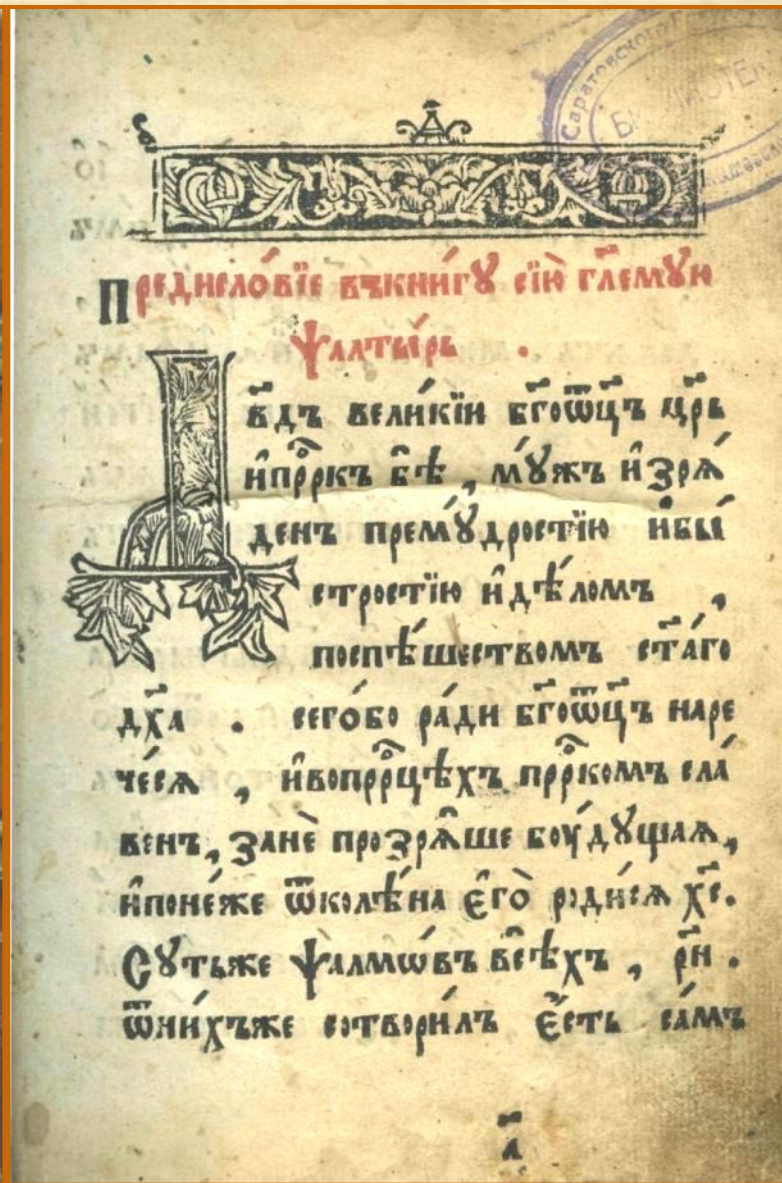 Саратовского
Предисло́вїе въкни́гꙋ сїю̀ гл҃емꙋю
Ѱалты́рь .
Дв҃дъ вели́кїи бг҃оѿц҃ъ цр҃ь
и҆прⷪ҇ркъ бѣ̀ , мꙋ́жъ и҆зрѧ́
денъ премꙋ́дростїю и҆бы́
стростїю и҆дѣ́ломъ ,
поспѣ́шествомъ ст҃а́го
дх҃а . сего́бо ра́ди бг҃оѿц҃ъ наре
че́сѧ , и҆вопрⷪ҇рцѣхъ прⷪ҇ркомъ сла́
венъ , занѐ прозрѧ́ше бꙋ́дꙋщаѧ ,
и҆поне́же ѿколѣ́на є҆го̀ роди́сѧ хс҃ .
Сꙋ́тьже ѱалмѡ́въ всѣ́хъ , рн҃ .
ѿни́хъже сотвори́лъ є҆́сть са́мъ
а҃